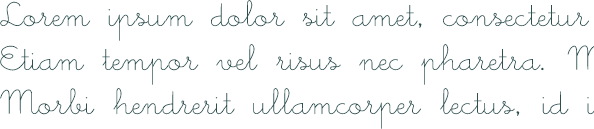 Lorem ipsum dolor sit amet, consectetur
Etiam tempor vel risus nec pharetra. M
Morbi hendrerit ullamcorper lectus, id i